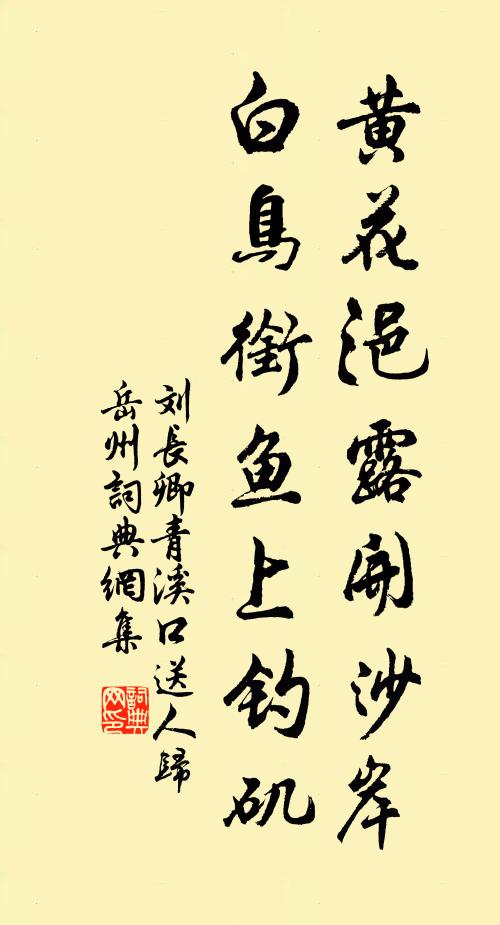 黄花浥露開沙岸
白鳥銜鱼上钓矶
刘長卿青溪口送人歸
岳州詞典網集
詞典網印